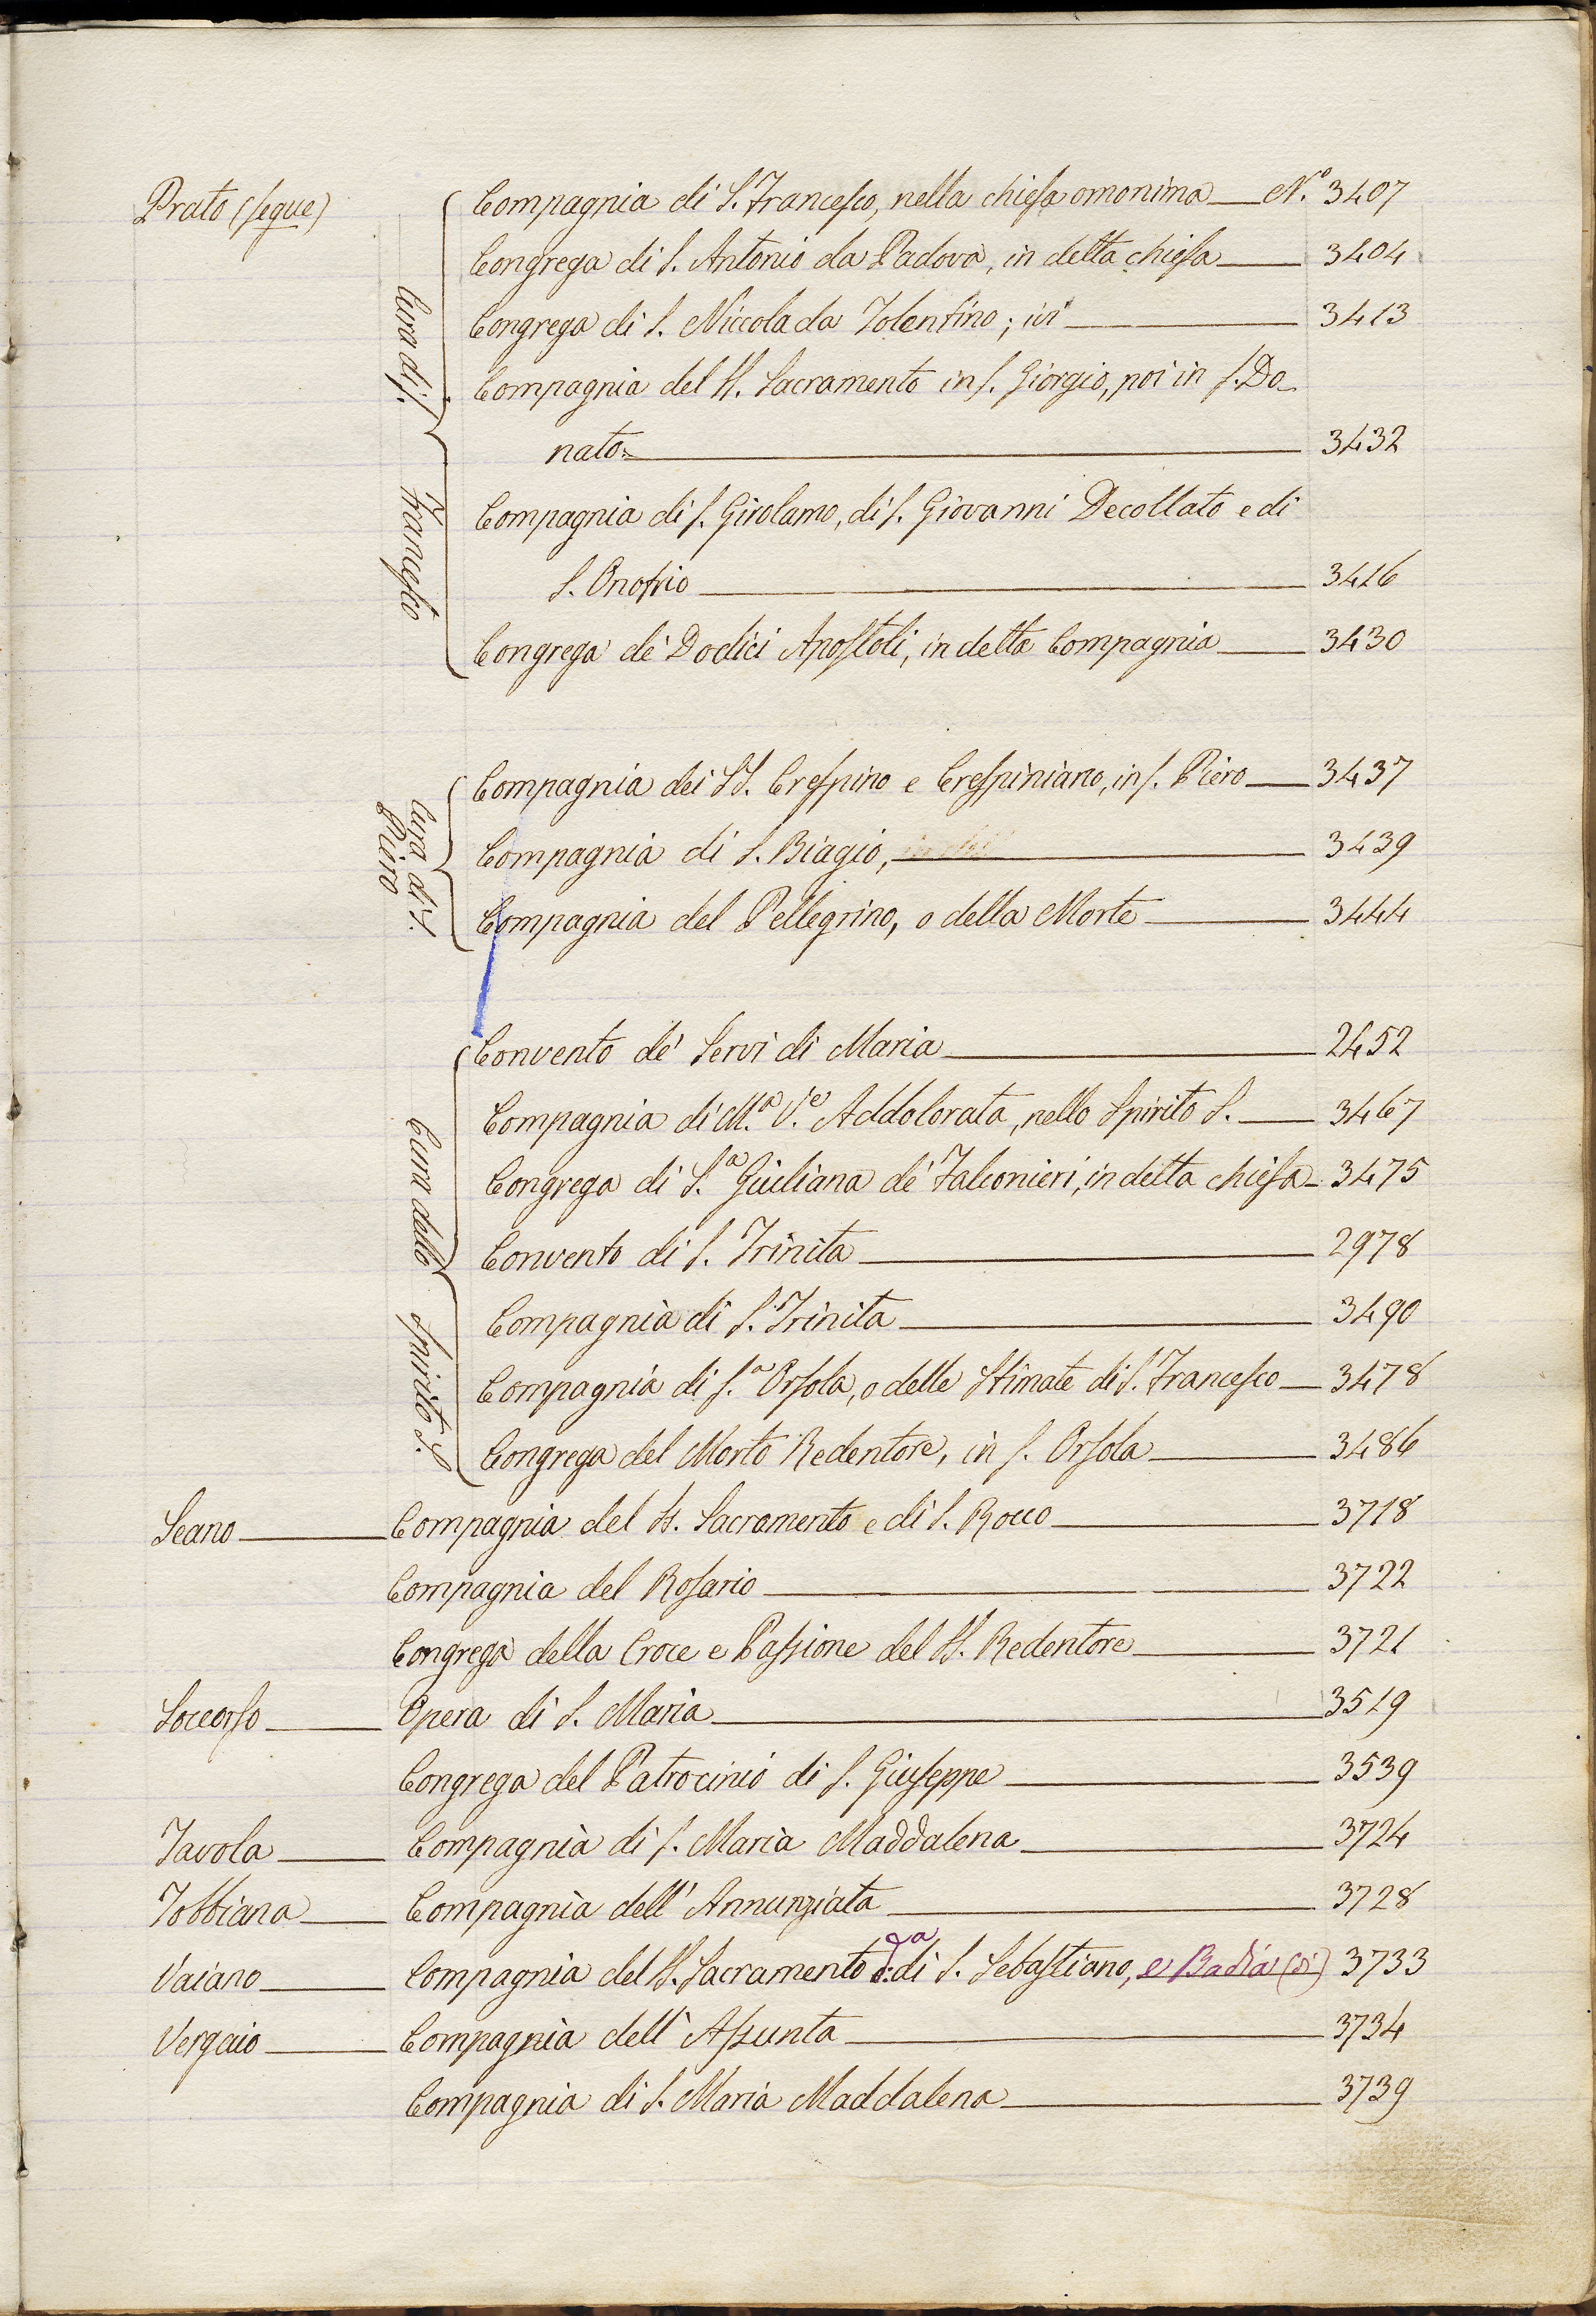 Prato (segue)
Cura di S. Francesco
Compagnia di S. Francesco, nella chiesa omonima N.° 3407
Congrega di S. Antonio da Padova, in detta chiesa 3404
Congrega di S. Niccola da Tolentino; ivi 3413
Compagnia del SS. Sacramento in S. Giorgio, poi in S. Do-
nato 3432
Compagnia di S. Girolamo, di S. Giovanni Decollato e di
S. Onofrio 3416
Congrega de' Dodici Apostoli, in detta Compagnia 3430
Cura di S.
Piero
Compagnia dei SS. Crespino e Crespiniano, in S. Piero 3437
Compagnia di S. Biagio, 3439
Compagnia del Pellegrino, o della Morte 3444
Cura dello Spirito S.
Convento de' Servi di Maria 2452
Compagnia di M.a V.e Addolorata, nello Spirito S. 3467
Congrega di S.a Giuliana de' Falconieri, in detta chiesa 3475
Convento di S. Trinita 2978
Compagnia di S. Trinita 3490
Compagnia di S.a Orsola, o delle Stimate di S. Francesco 3478
Congrega del Morto Redentore, in S. Orsola 3486
Seano Compagnia del SS. Sacramento e di S. Rocco 3718
Compagnia del Rosario 3722
Congrega della Croce e Passione del SS. Redentore 3721
Soccorso Opera di S. Maria 3519
Congrega del Patrocinio di S. Giuseppe 3539
Tavola Compagnia di S. Maria Maddalena 3724
Tobbiana Compagnia dell' Annunziata 3728
Vaiano Compagnia del SS. Sacramento d.a di S. Sebastiano, e Badia (di) 3733
Vergaio Compagnia dell' Assunta 3734
Compagnia di S. Maria Maddalena 3739